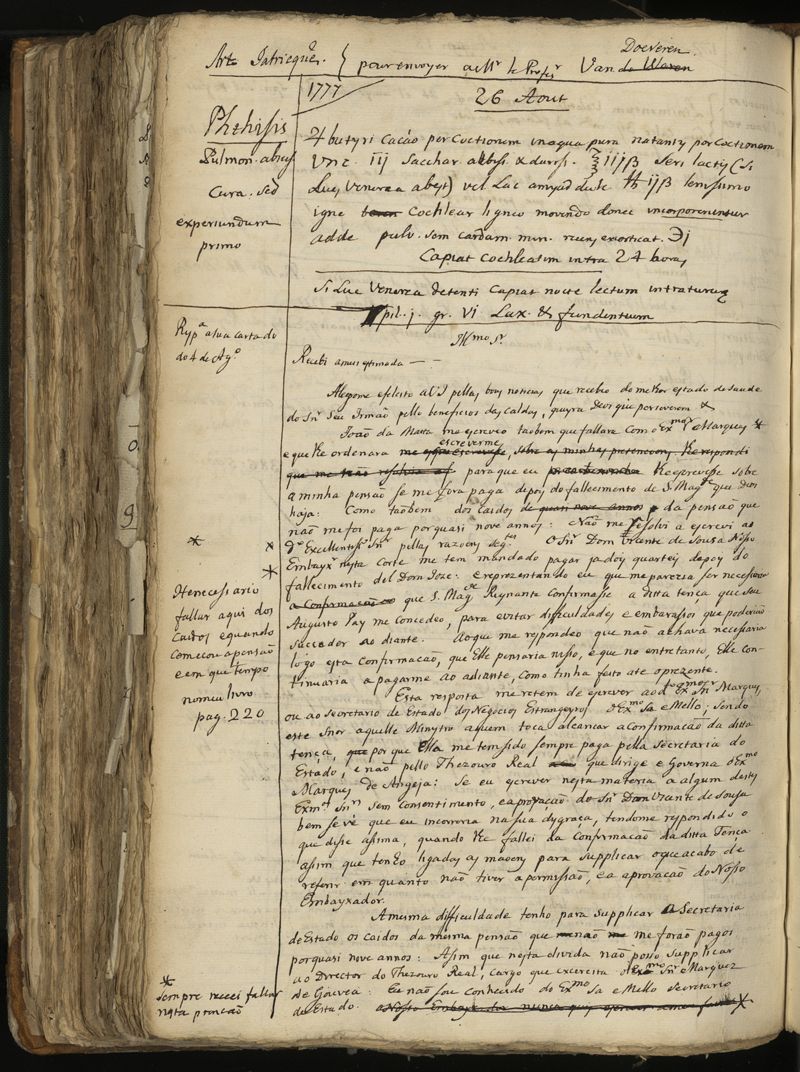 Arte Iatricque. } pour envoyer a Mr le Profesr Van de Waren
Doeveren
1777
26 Aout
Phthisis
Pulmon. abest
Cura. Sed
experiundum
primo
♃ butyri Cacáo per Coctionem in aqua pura natantis por coctionem
Unc. iij Sacchar albiss. & duriss. ℥ iijβ Seri lactis (Si
Lues Venerea abest) vel Lac amygd dulc ℔ ijβ lenissimo
igne cochlear ligneo movendo donec incorporenintur
adde pulv. Sem Cardam. min. recens excorticat. ℈j
Capiat Cochleatim intra 24 horas
Si Lue Venerea detenti Capiat nocte lectum intraturus
pil. j. gr. VI Lax. & fundentium
Respa a sua carta do
do 4 de Ago
Illmo Sr
Recebi a mui estimada — —
Alegrome esfeleito a VS pellas boas noticias que recebeo do melhor estado de saude
do Snr Seu Irmaõ pello beneficios das Caldas, queyra Deos que perseverem &
Joaõ da Matta me escreveo taõbem que fallara Com o Exmo Sr Marques *
e que lhe ordenara me escreverme, sobre as minhas pretencoens. Respondi
para que eu lhe escrevesse sobre
a minha pensaõ se me fora paga depois do fallecimento de S. Magde que Deos
haja: Como taõbem dos Caidos de quasi nove annos da pensaõ que
naõ me foi paga por quasi nove annos: Naõ me resolvi a escrevi ao
* * do Excellentissmo Snr pellas razoens segtes O Snr Dom Vicente de Sousa Nosso
Embayxr nesta Corte me tem mandado pagar ja dois quarteis depois do
fallecimento del Dom Joze: e reprezentando eu que me parezia ser necessario
a Confirmacaõ que S. Magde Reynante Confirmasse a ditta tença que seu
Augusto Pay me Concedeo, para evitar difficuldades e embarassos que poderiaõ
succedor ao diante. Ao que me respondeo que naõ achava necessaria
logo esta confirmacaõ, que Elle pensaria nisso, e que no entretanto, Elle con-
tinuaria a pagarme ao adiante, como tinha feito ate o prezente.
*
He necessario
fallar aqui dos
Caidos e quando
comecou a pensaõ
e em que tempo
no meu livro
pag. 220
Esta resposta me retem de escrever ao do Exmo Snr Marques
ou ao Secretario de Estado dos Negocios Estrangeyros o Exmo Sa e Mello; sendo
este Snor aquelle Ministro aquem toca alcancar a Confirmacaõ da ditta
tença, que por que Ella me tem sido sempre paga pella Secretaria do
Estado, e naõ pello Thezouro Real que dirige e Governa o Exmo
Marques de Angeja: Se eu escrever nesta materia a algum destes
Exmos Snrs sem consentimento, e aprovaçaõ do Snr Dom Vicente de Sousa
bem se vé que eu incorreria na sua dysgraça, tendome respondido o
que disse assima, quando lhe fallei da Confirmacaõ da ditta Tença
assim que tenho ligados as maõens para supplicar o que acabo de
referir em quanto naõ tiver a permissaõ, e a aprovaçaõ do Nosso
Embayxador.
A mesma difficuldade tenho para Supplicar a Secretaria
do Estado os caidos da mesma pensaõ que naõ me foraõ pagos
por quasi nove annos: Assim que nesta divida naõ posso Supplicar
ao Director do Thezouro Real, cargo que excercita o Exmo Snr Marquez
de Gouvea: Eu naõ sou Conhecido do Exmo Sa e Mello Secretario
de Estado. o Nosso Embayxador nunca quis *
*
Sempre recei fallar
nesta pencaõ